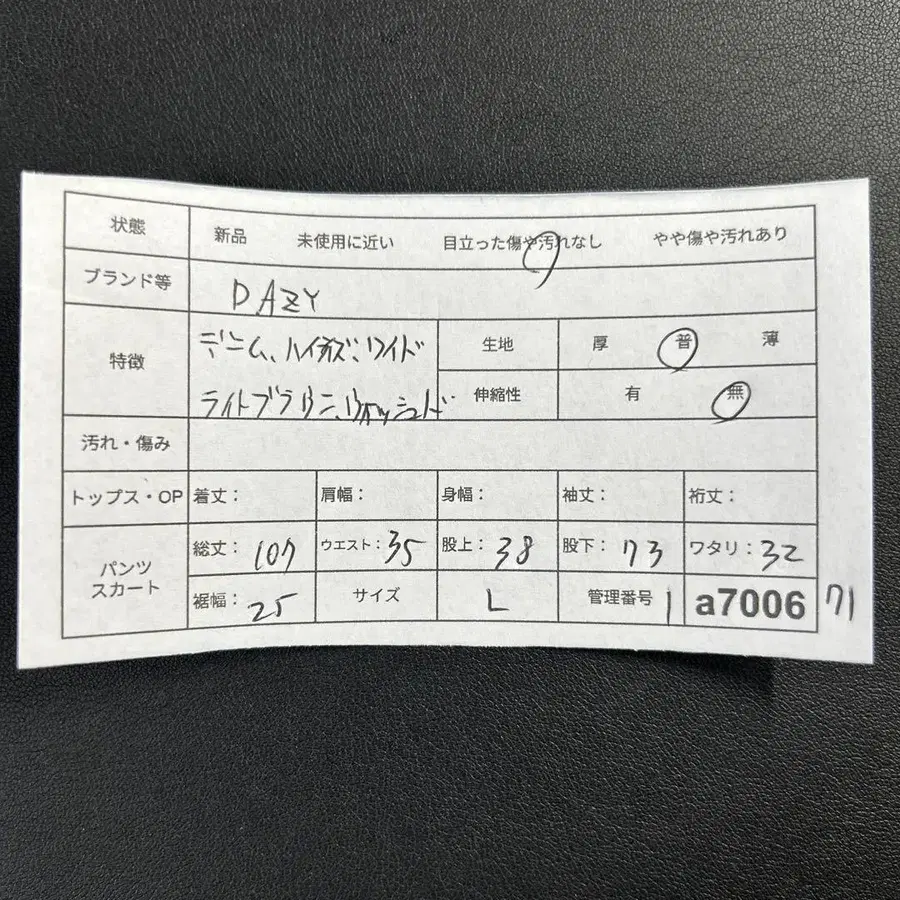 状態 新品 未使用に近い 目立った傷や汚れなし やや傷や汚れあり
ブランド等 DAZY
特徴 デニム、ワイド
ライトブラウン、ウォッシュド
生地 厚 普 薄
伸縮性 有 無
汚れ・傷み
トップス・OP 着丈： 肩幅： 身幅： 袖丈： 裄丈：
パンツ
スカート
総丈：107 ウエスト：35 股上：38 股下：73 ワタリ：32
裾幅：25 サイズ L 管理番号 1 a7006 71